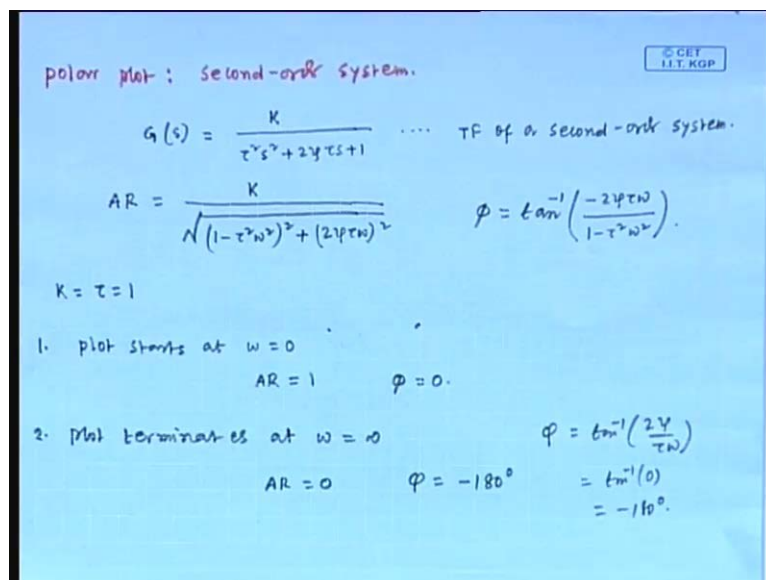 © CET
I.I.T. KGP
polar plot : second-order system.
G(s) = K / (τ²s² + 2ψτs + 1) .... TF of a second-order system.
AR = K / √((1-τ²ω²)² + (2ψτω)²) φ = tan⁻¹(-2ψτω / (1-τ²ω²)).
K = τ = 1
1. plot starts at ω = 0
AR = 1 φ = 0.
2. plot terminates at ω = ∞ φ = tan⁻¹(2ψ / τω)
AR = 0 φ = -180° = tan⁻¹(0)
= -180°.